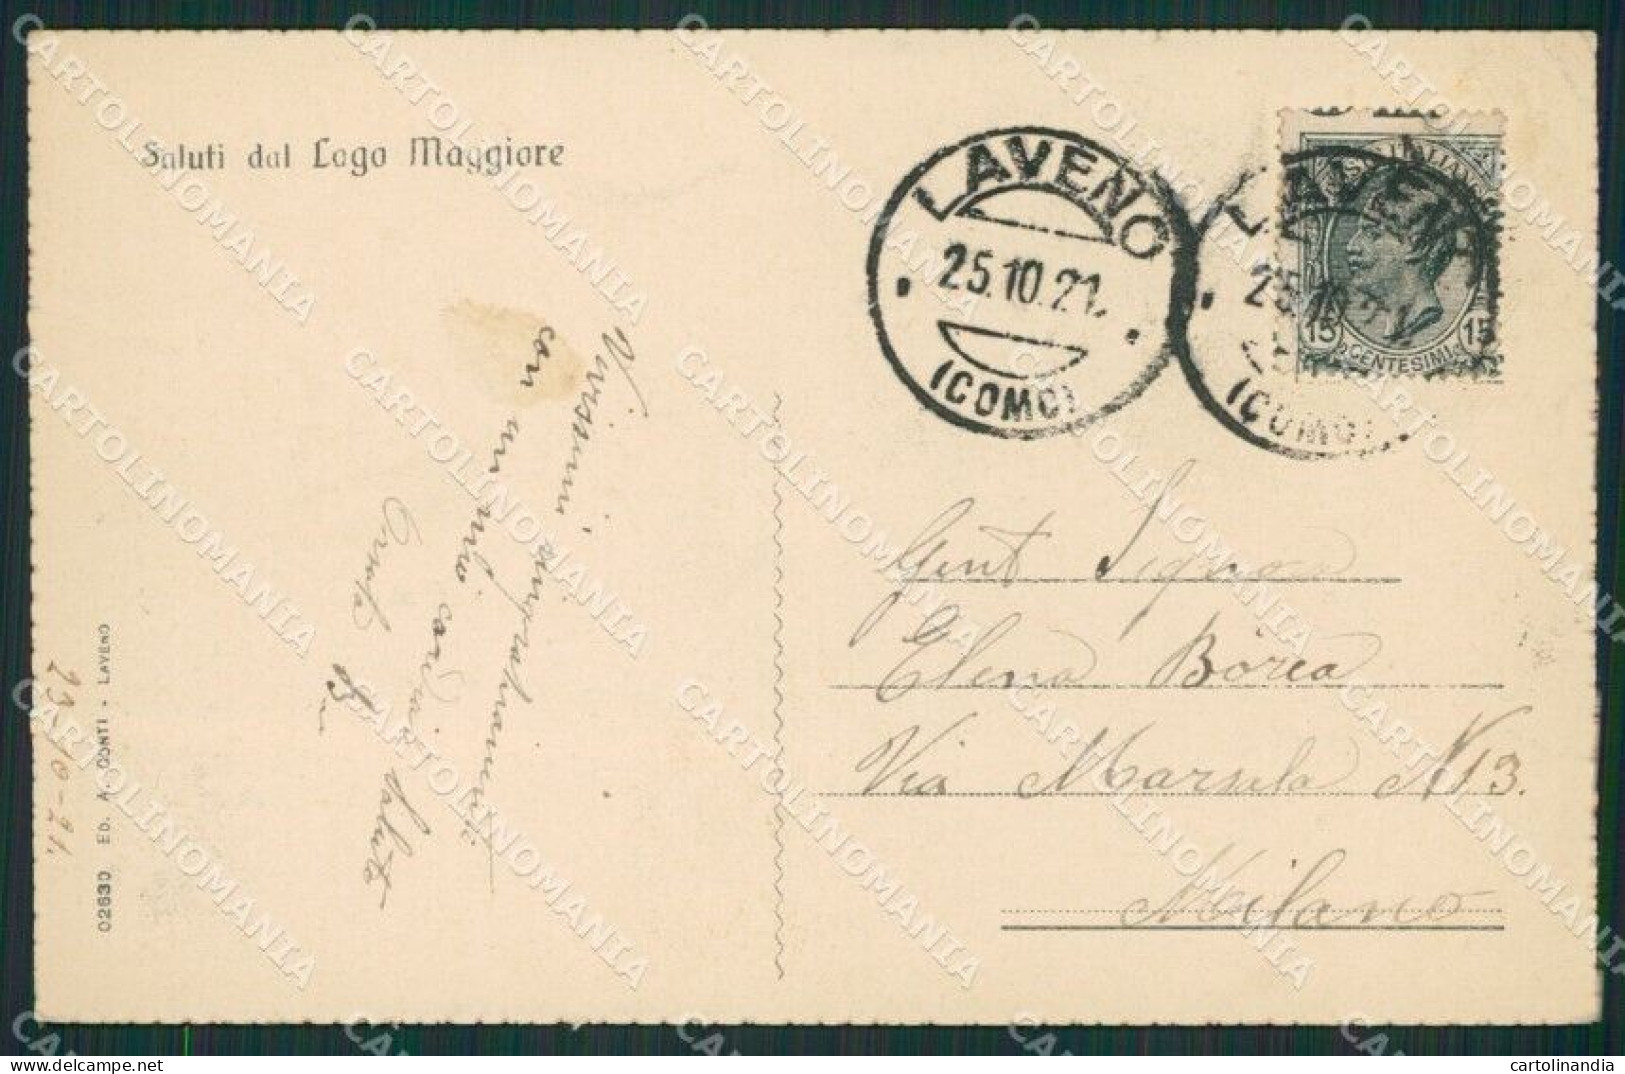 Saluti dal Lago Maggiore
LAVENO
25.10.21.
(COMO)
LAVENO
25.10.21
(COMO)
POSTE ITALIANE
15 CENTESIMI 15
Vivissimi ringraziamenti
con un mio cordiale saluto
Gent Signora
Elena Borea
Via Marsala N 13.
Milano
02630 ED. A. CONTI - LAVENO
23-10-21.
CARTOLINOMANIA
cartolinandia